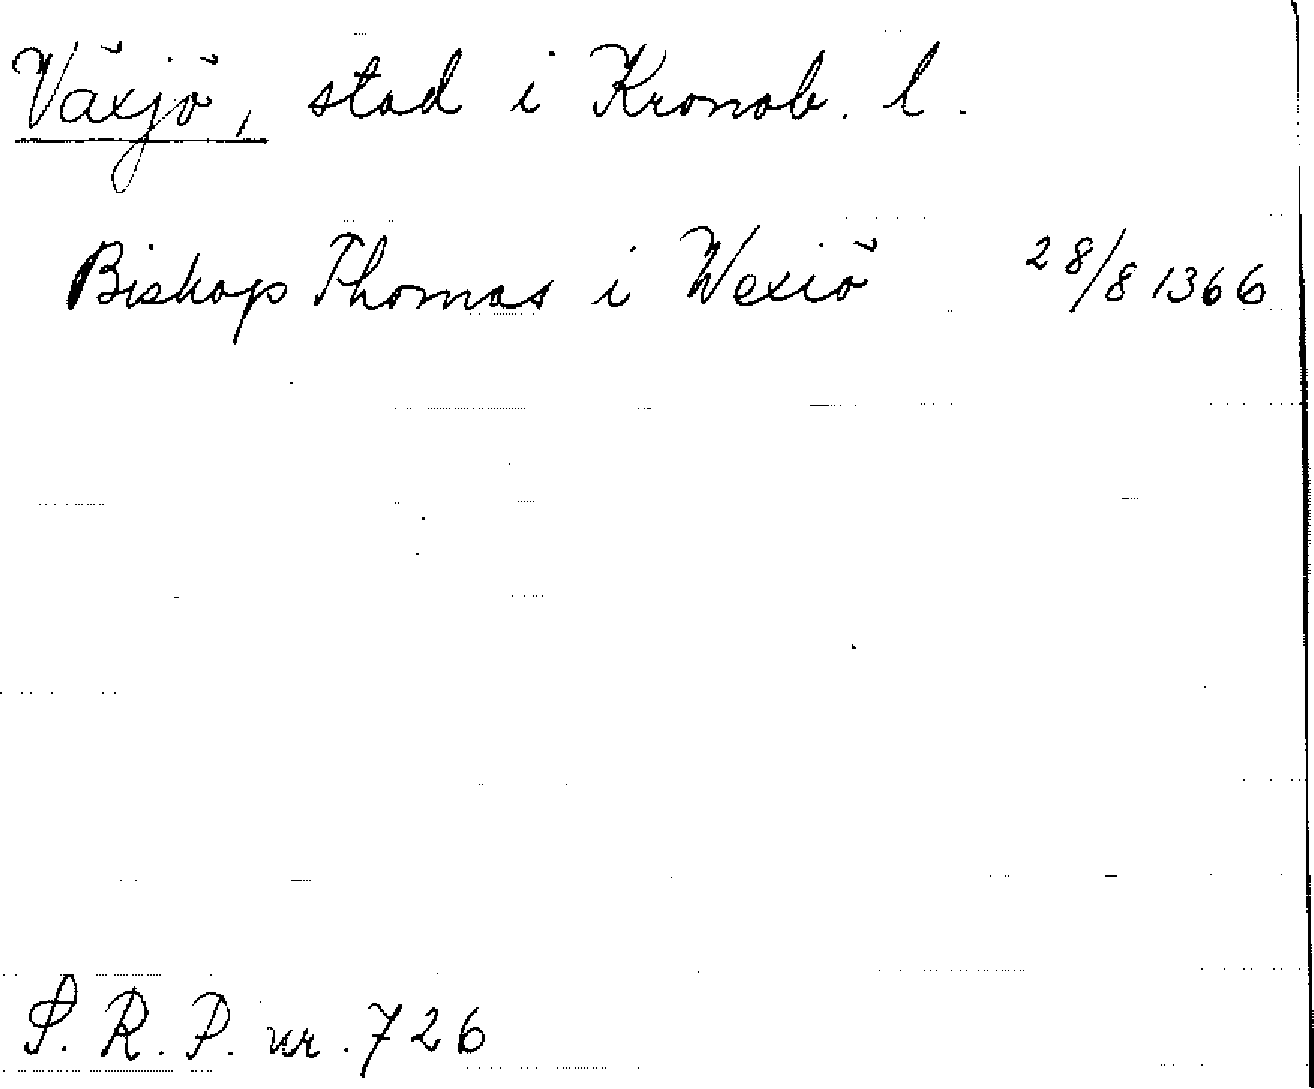 Växjö, stad i Kronob. l.
Biskop Thomas i Wexiö 28/8 1366
S. R. P. nr. 726